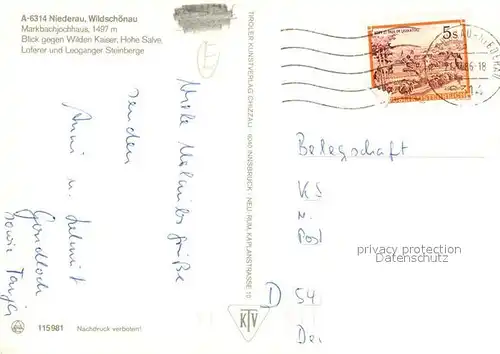 A-6314 Niederau, Wildschönau
Markbachjochhaus, 1497 m
Blick gegen Wilden Kaiser, Hohe Salve,
Loferer und Leoganger Steinberge
E
Viele Urlaubsgrüße
senden
Anni u. Helmut
Gendloch
sowie Tanja
115981 Nachdruck verboten!
TIROLER KUNSTVERLAG CHIZZALI 6040 INNSBRUCK - NEU-RUM, KAPLANSTRASSE 10
KTV
5 S
Belegschaft
KS
N.
Post
privacy protection
Datenschutz
D 54
Der